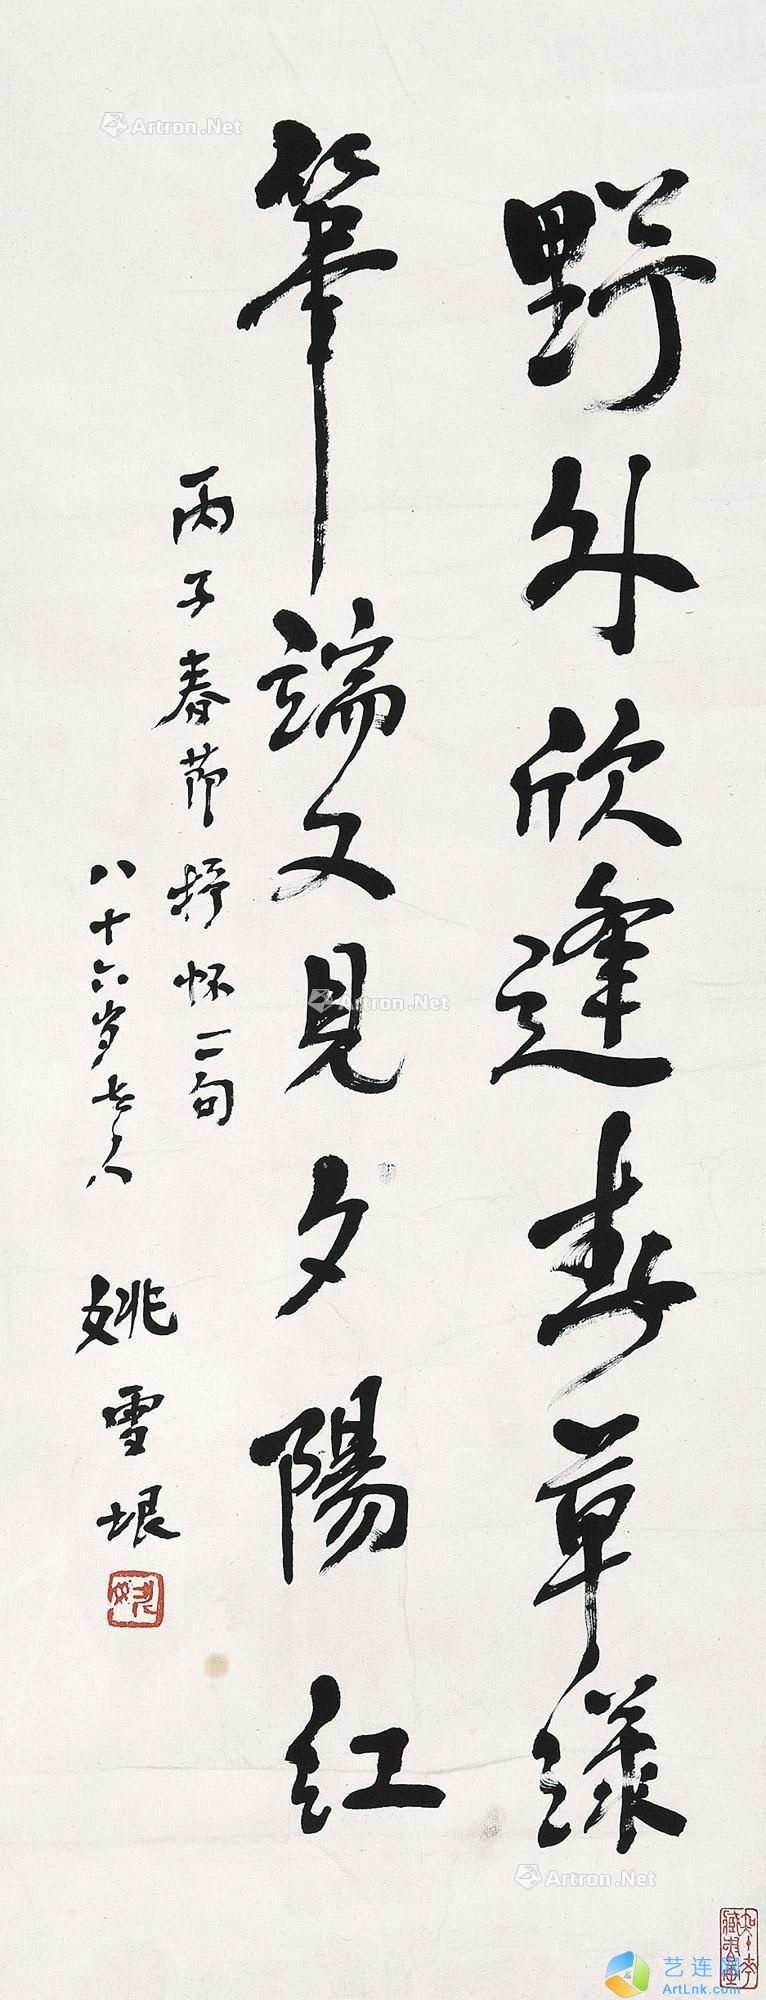 野外欣逢春草綠
筆端又見夕陽紅
丙子春节抒怀二句
八十六岁老人
姚雪垠
Artron.Net
Artron.Net
Artron.Net
艺连网
ArtLnk.com